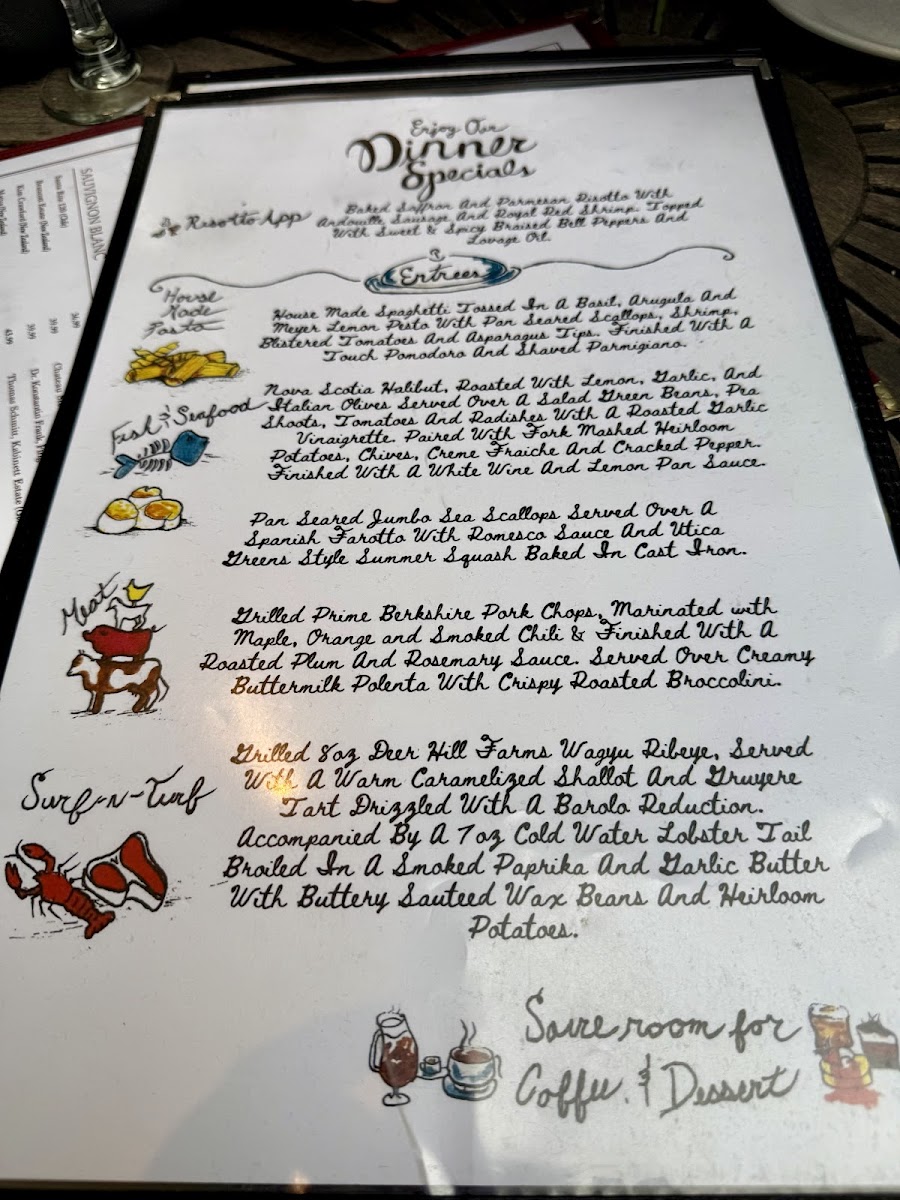 Enjoy Our
Dinner
Specials
Risotto App
Baked Saffron And Parmesan Risotto With
Andouille Sausage And Royal Red Shrimp. Topped
With Sweet & Spicy Braised Bell Peppers And
Lovage Oil.
Entrees
House
Made
Pasta
House Made Spaghetti Tossed In A Basil, Arugula And
Meyer Lemon Pesto With Pan Seared Scallops, Shrimp,
Blistered Tomatoes And Asparagus Tips. Finished With A
Touch Pomodoro And Shaved Parmigiano.
Fish & Seafood
Nova Scotia Halibut, Roasted With Lemon, Garlic, And
Italian Olives Served Over A Salad Green Beans, Pea
Shoots, Tomatoes And Radishes With A Roasted Garlic
Vinaigrette. Paired With Fork Mashed Heirloom
Potatoes, Chives, Creme Fraiche And Cracked Pepper.
Finished With A White Wine And Lemon Pan Sauce.
Pan Seared Jumbo Sea Scallops Served Over A
Spanish Farotto With Romesco Sauce And Utica
Greens Style Summer Squash Baked In Cast Iron.
Meat
Grilled Prime Berkshire Pork Chops, Marinated with
Maple, Orange and Smoked Chili & Finished With A
Roasted Plum And Rosemary Sauce. Served Over Creamy
Buttermilk Polenta With Crispy Roasted Broccolini.
Surf-N-Turf
Grilled 8oz Deer Hill Farms Wagyu Ribeye, Served
With A Warm Caramelized Shallot And Gruyere
Tart Drizzled With A Barolo Reduction.
Accompanied By A 7oz Cold Water Lobster Tail
Broiled In A Smoked Paprika And Garlic Butter
With Buttery Sauteed Wax Beans And Heirloom
Potatoes.
Save room for
Coffee & Dessert
SAUVIGNON BLANC